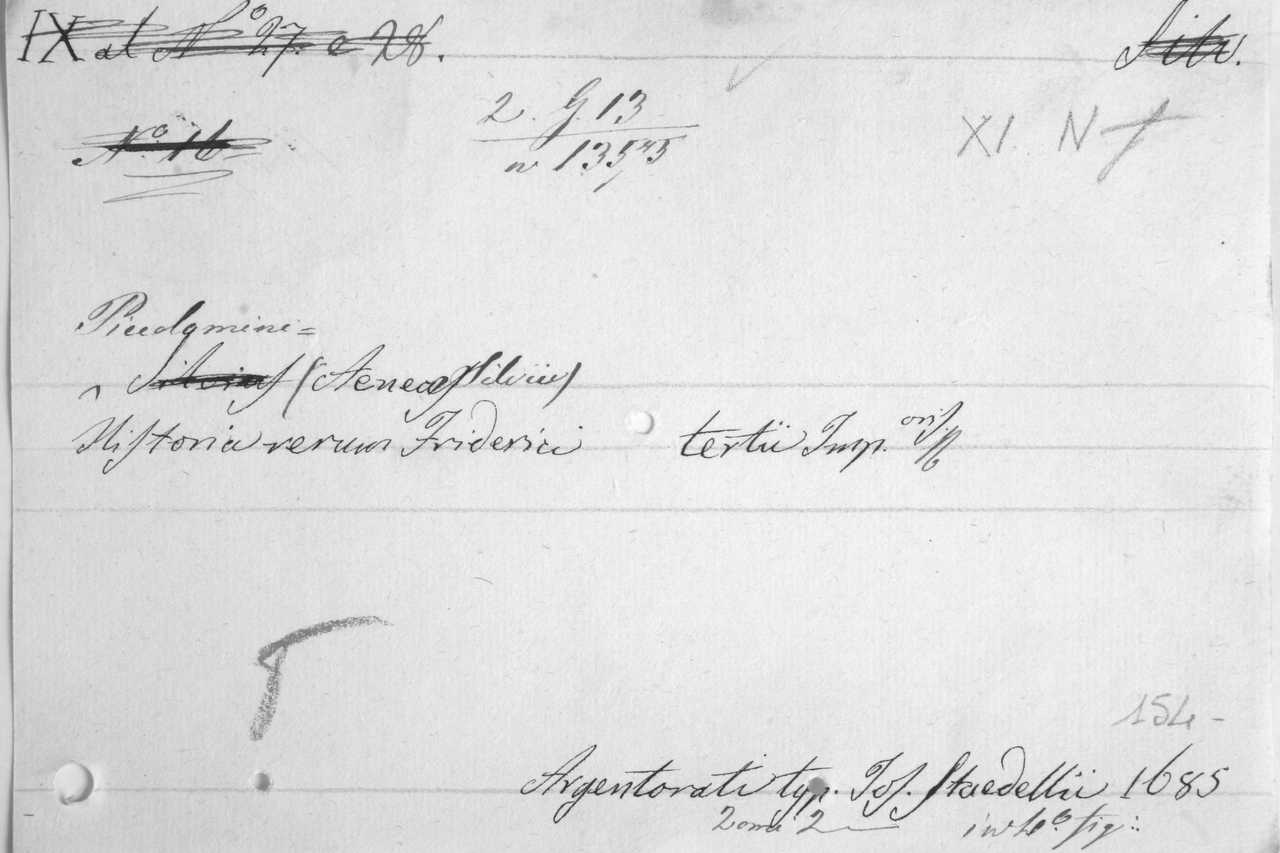 IX al N° 27 e 28.
Silv.
N° 16
2. G. 13
n 135
XI N
Piccolomini=
Silvius (Aeneas Silvii)
Historia rerum Friderici tertii Imp.
154-
Argentorati typ. Jos. Staedellii 1685
Tomi 2 in 4° fig: